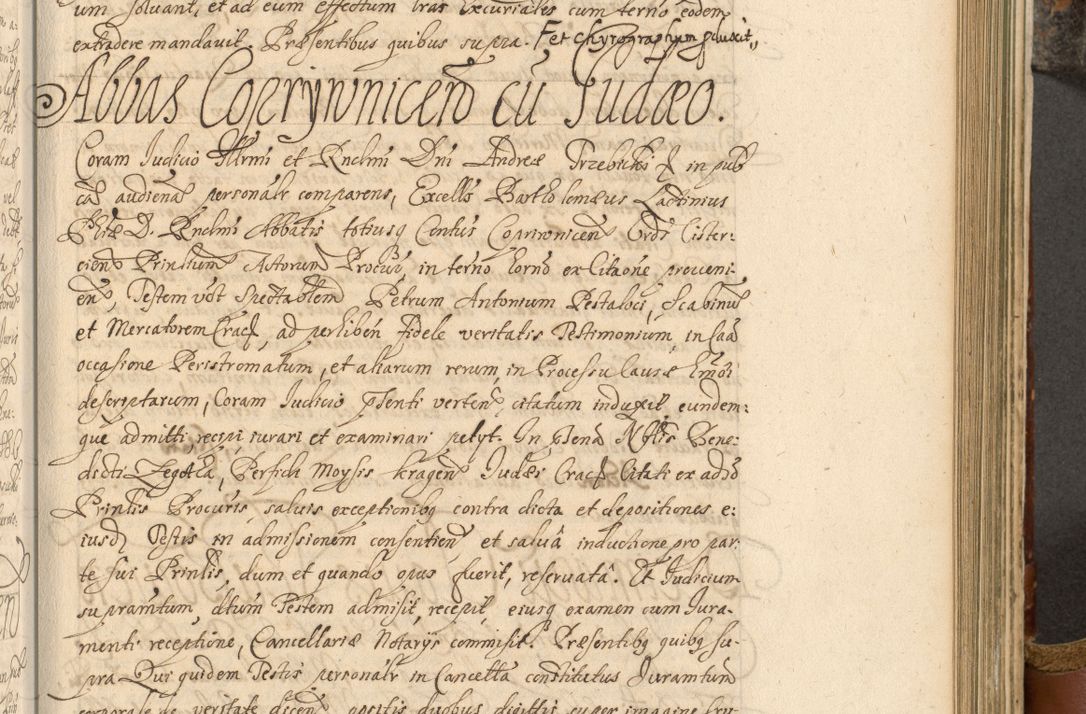 um solvant, et ad eum effectum lras Excusriales cum terno eodem
extradere mandavit. Præsentibus quibus supra. Fet Chyrographum pduxit,,
Abbas Coprzywnicen͠ cū Judæo.
Coram Iudicio Illrmi et Rndmi Dni Andreæ Trzebicki in pub
cā audienā personalr comparens, Excells Bartholomæus Lactinius
Phiæ D. Rndmi Abbatis totiusq Centus Coprivnicen Ordi Cister:
cien Prinlium Actorum Procur, in terno horno ex Citaone proveni:
en, Testem vdt Spectablem Petrum Antonium Pestaloci, Scabinum
et Mercatorem Crac, ad perhiben fidele veritatis Testimonium, in Caa
occasione Peristromatum, et aliarum rerum, in Processu Causæ hmoi
descriptarum, Coram Iudicio psenti verten, citatum induxit eundem:
que admitti, recipi iurari et examinari petyt. In psena Nftis Bene:
dicti Zegotta, Perfidi Moysis kragen Judæi Crac Citati ex adso
Prinlis Procuris, salvis exceptionibq contra dicta et depositiones e:
iusd Testis in admissionem consentien et salvâ inductione pro par:
te sui Prinlis, dum et quando opus fuerit, reservatâ. Et Iudicium
supramtum, dtum Testem admisit, recepit, eiusq examen cum Iura:
menti receptione, Cancellariæ Notarijs commisit. Præsentibq quibq su:
pra Qui quidem Testis personalr in Cancella constitutus Iuramtum
corporale de veritate dicen positis duobus digitis super imagine Cru: